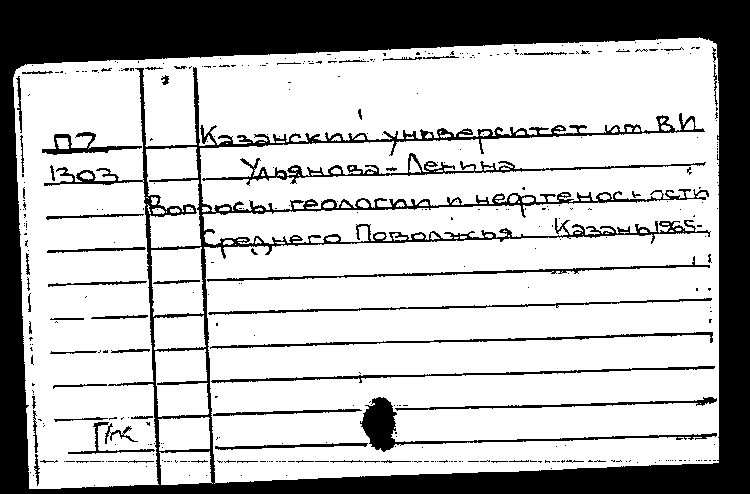 П7 Казанский университет им. В.И.
1303 Ульянова-Ленина.
Вопросы геологии и нефтеносности
Среднего Поволжья. Казань, 1965-